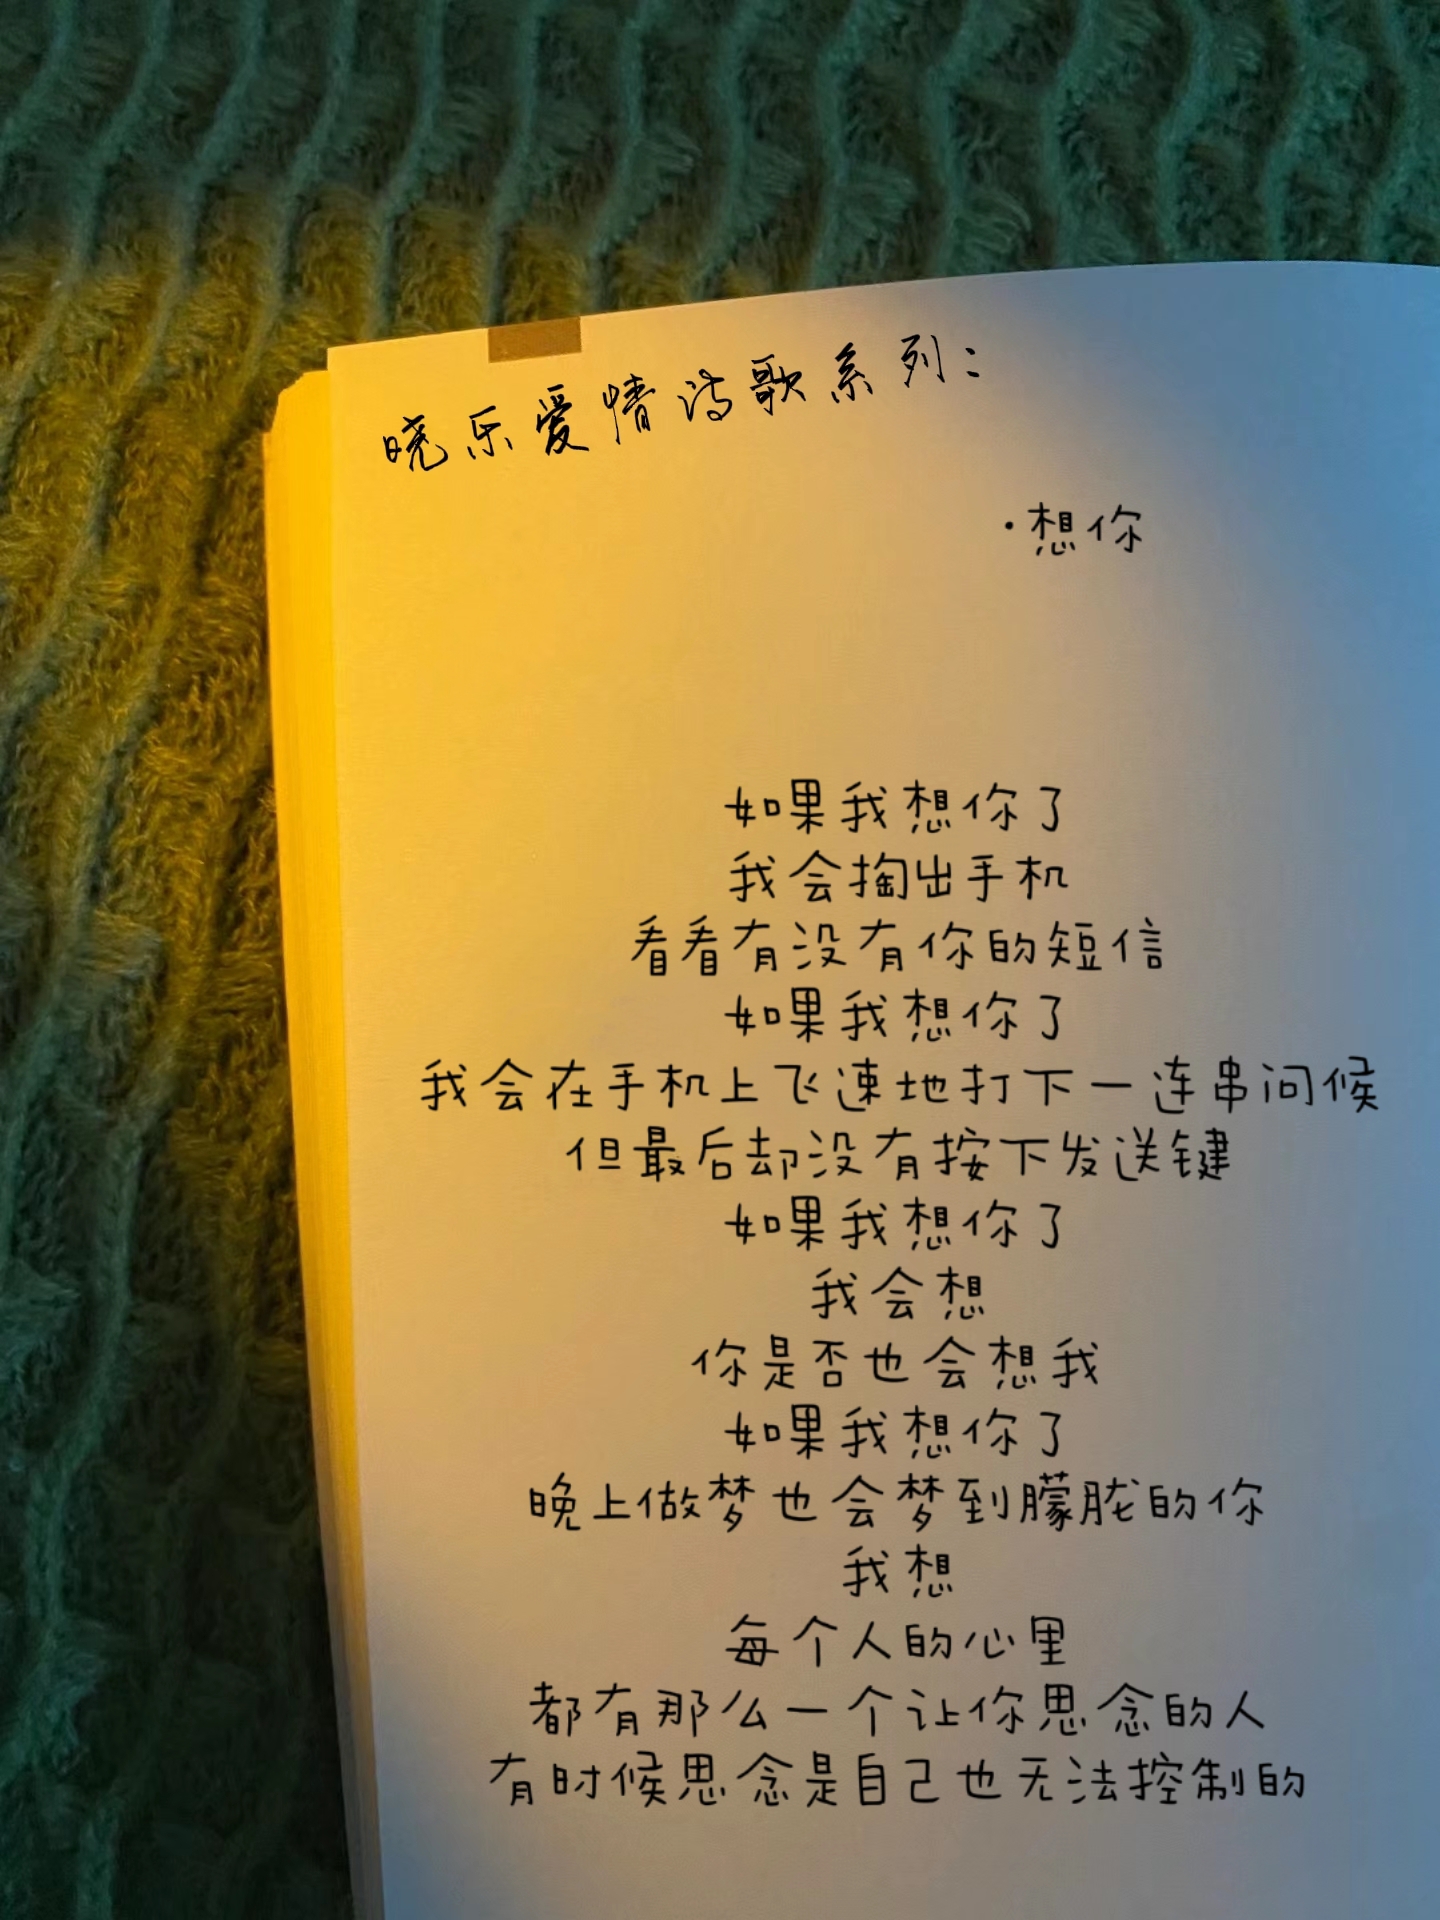 晓乐爱情诗歌系列：
·想你
如果我想你了
我会掏出手机
看看有没有你的短信
如果我想你了
我会在手机上飞速地打下一连串问候
但最后却没有按下发送键
如果我想你了
我会想
你是否也会想我
如果我想你了
晚上做梦也会梦到朦胧的你
我想
每个人的心里
都有那么一个让你思念的人
有时候思念是自己也无法控制的